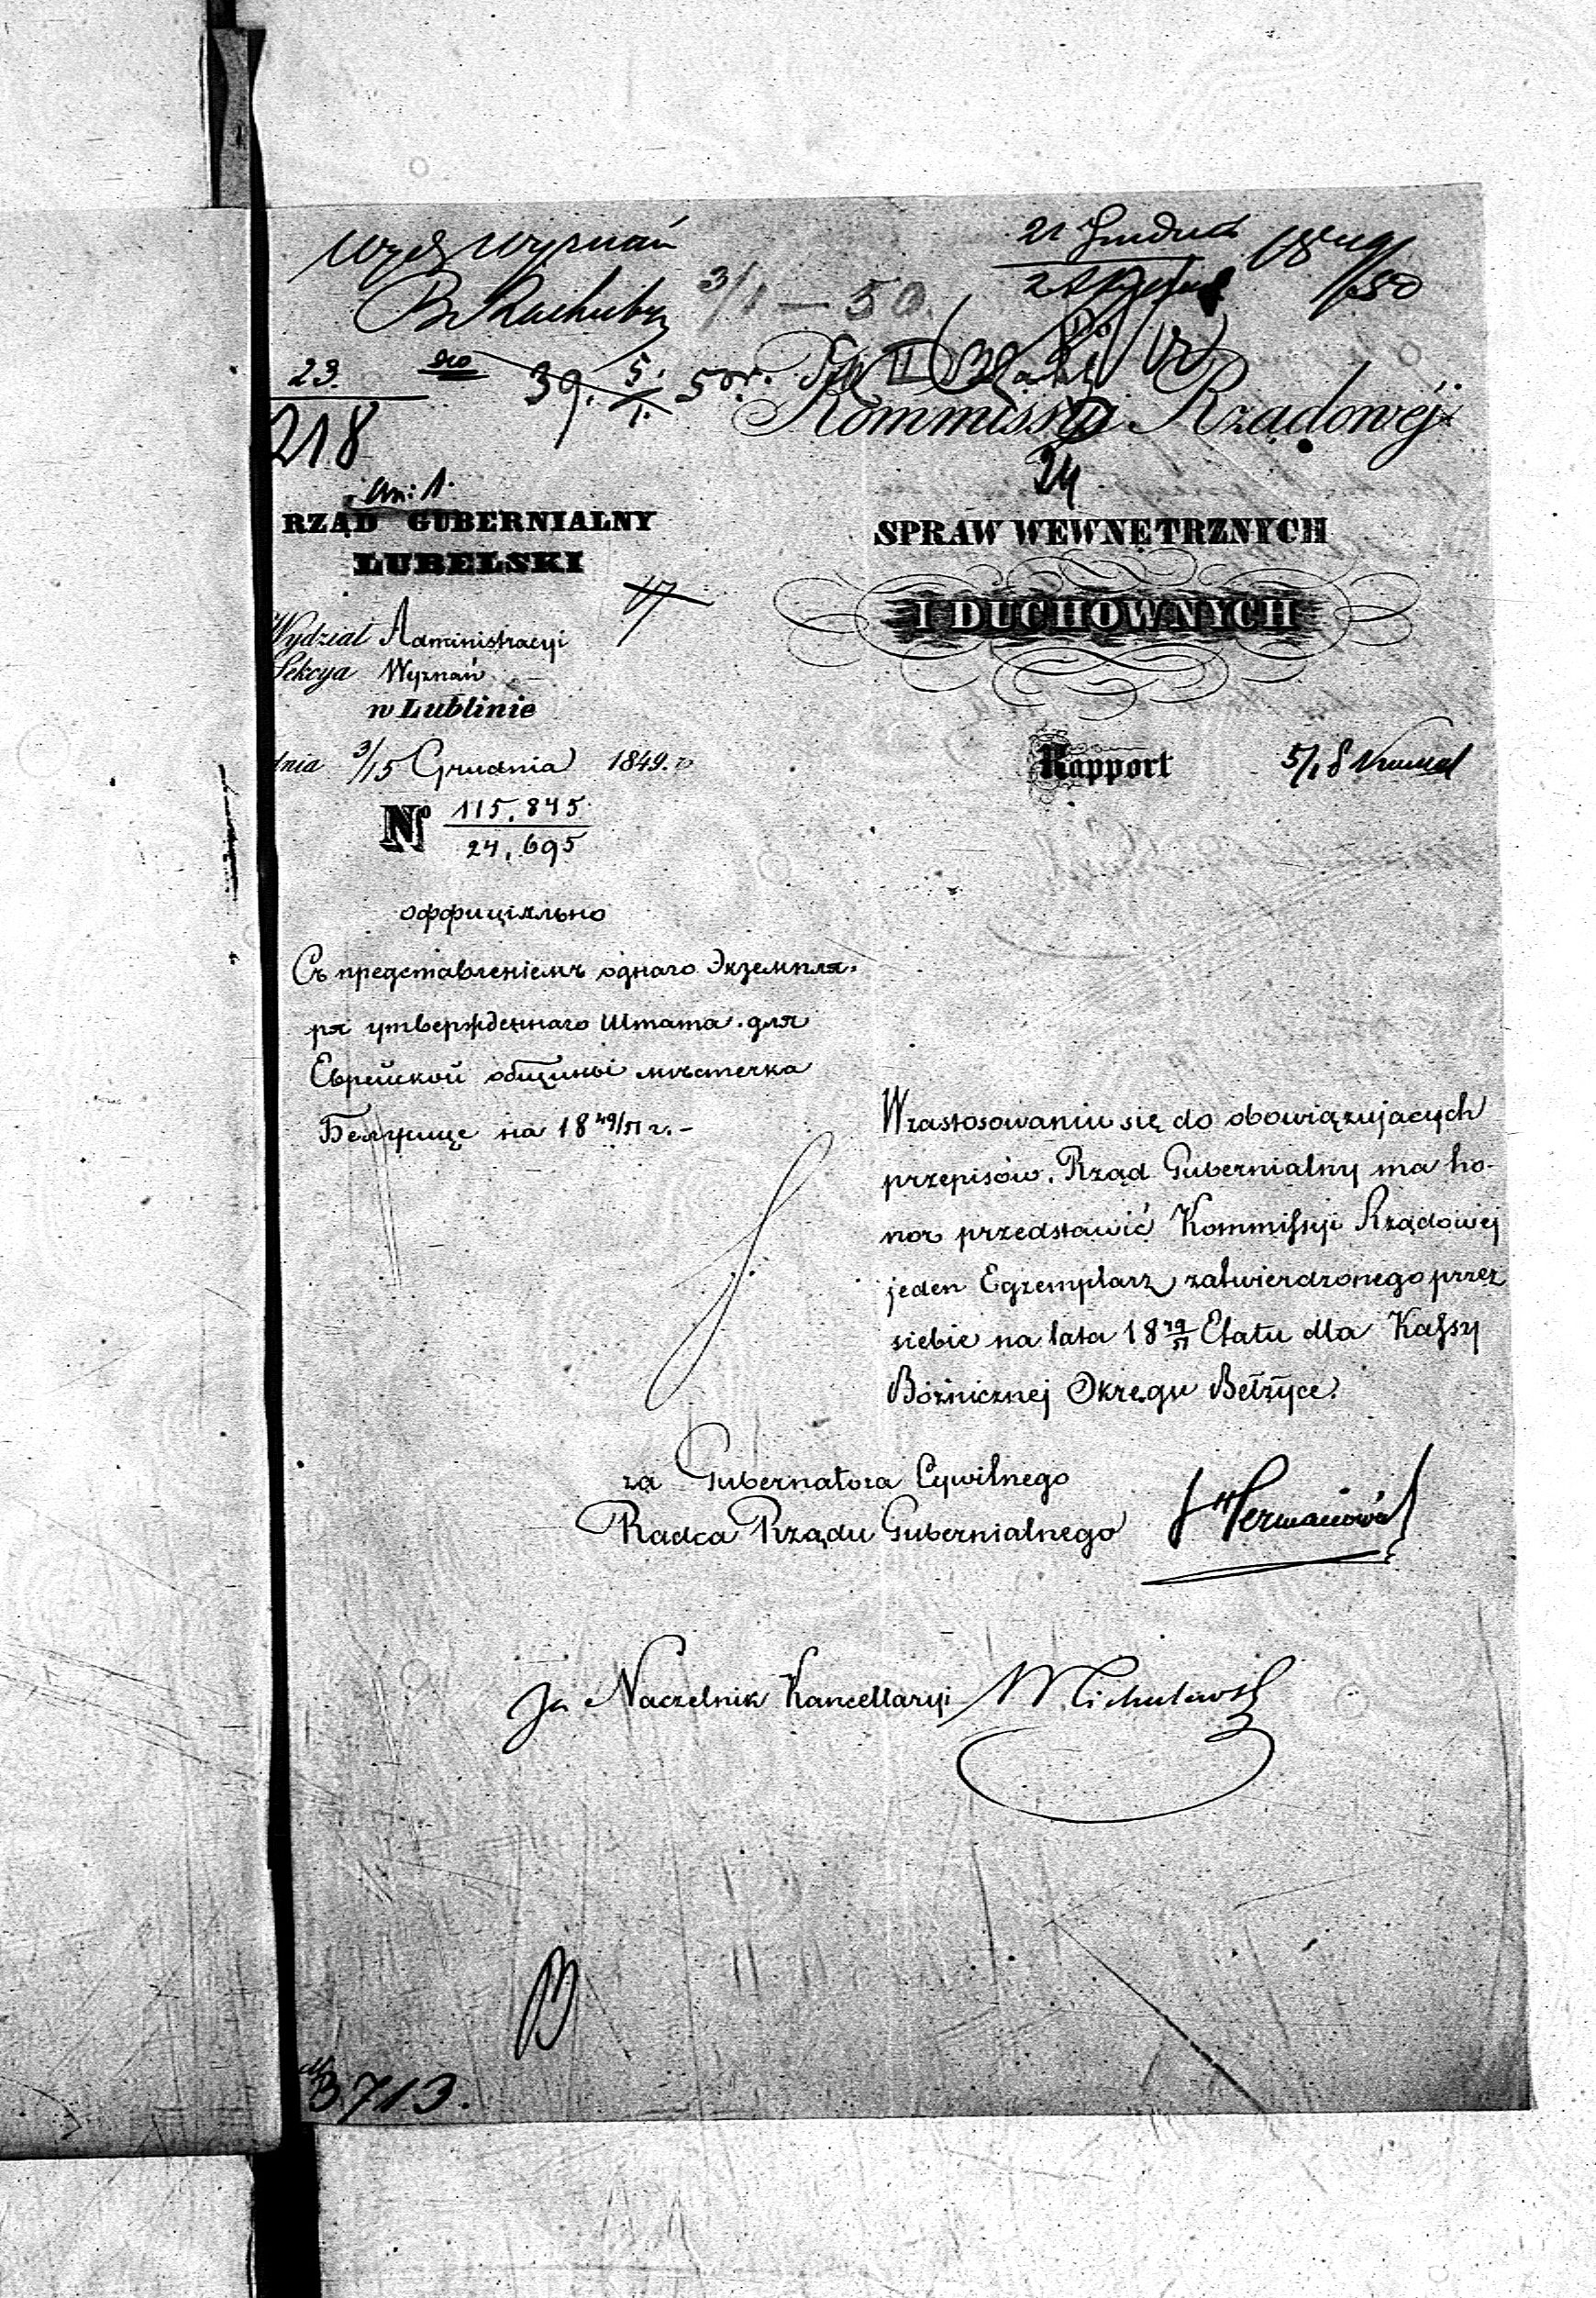 Wyznań
3/1 — 50.
21 Grudnia 1849
23.
218
39. 5/1. 50 r.
II
Kommissyi Rządowéj
24
An: 1.
RZĄD GUBERNIALNY
LUBELSKI
SPRAW WEWNĘTRZNYCH
I DUCHOWNYCH
17
Wydział Administracyi
Sekcya Wyznań
w Lublinie
dnia 3/15 Grudnia 1849. r.
Rapport
5/18
Nº 115,845
24,695
оффиціально
Съ представленіемъ однаго Экземпля-
ра утвержденнаго Штата для
Еврейской общины мѣстечка
Белжице на 18 49/51 г. –
W zastosowaniu się do obowiązujących
przepisów, Rząd Gubernialny ma ho-
nor przedstawić Kommissyi Rządowej
jeden Egzemplarz zatwierdzonego przez
siebie na lata 18 49/51 Etatu dla Kassy
Bóżnicznej Okręgu Bełżyce.
za Gubernatora Cywilnego
Radca Rządu Gubernialnego
za Naczelnik Kancellaryi
3713.